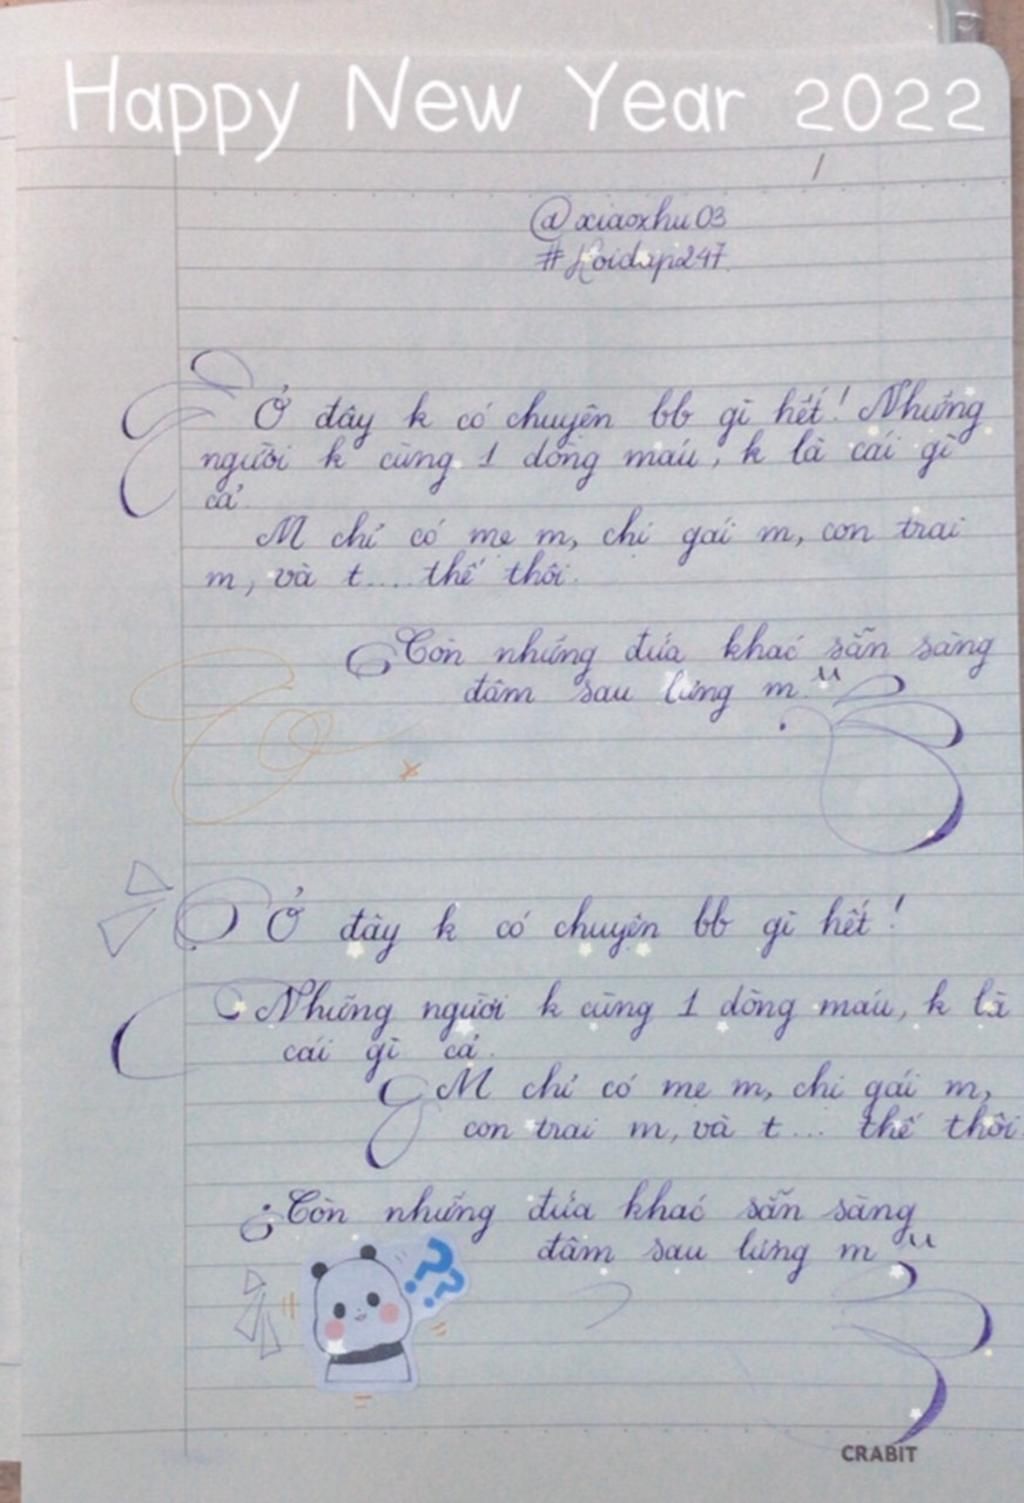 Happy New Year 2022
@xiaoxhu03
#Hoidap247.
Ở đây k có chuyện bb gì hết! Những
người k cùng 1 dòng máu, k là cái gì
cả.
M chỉ có mẹ m, chị gái m, con trai
m, và t.... thế thôi.
Còn những đứa khác sẵn sàng
đâm sau lưng m."
Ở đây k có chuyện bb gì hết!
Những người k cùng 1 dòng máu, k là
cái gì cả.
M chỉ có mẹ m, chị gái m,
con trai m, và t... thế thôi.
Còn những đứa khác sẵn sàng
đâm sau lưng m"
??
CRABIT